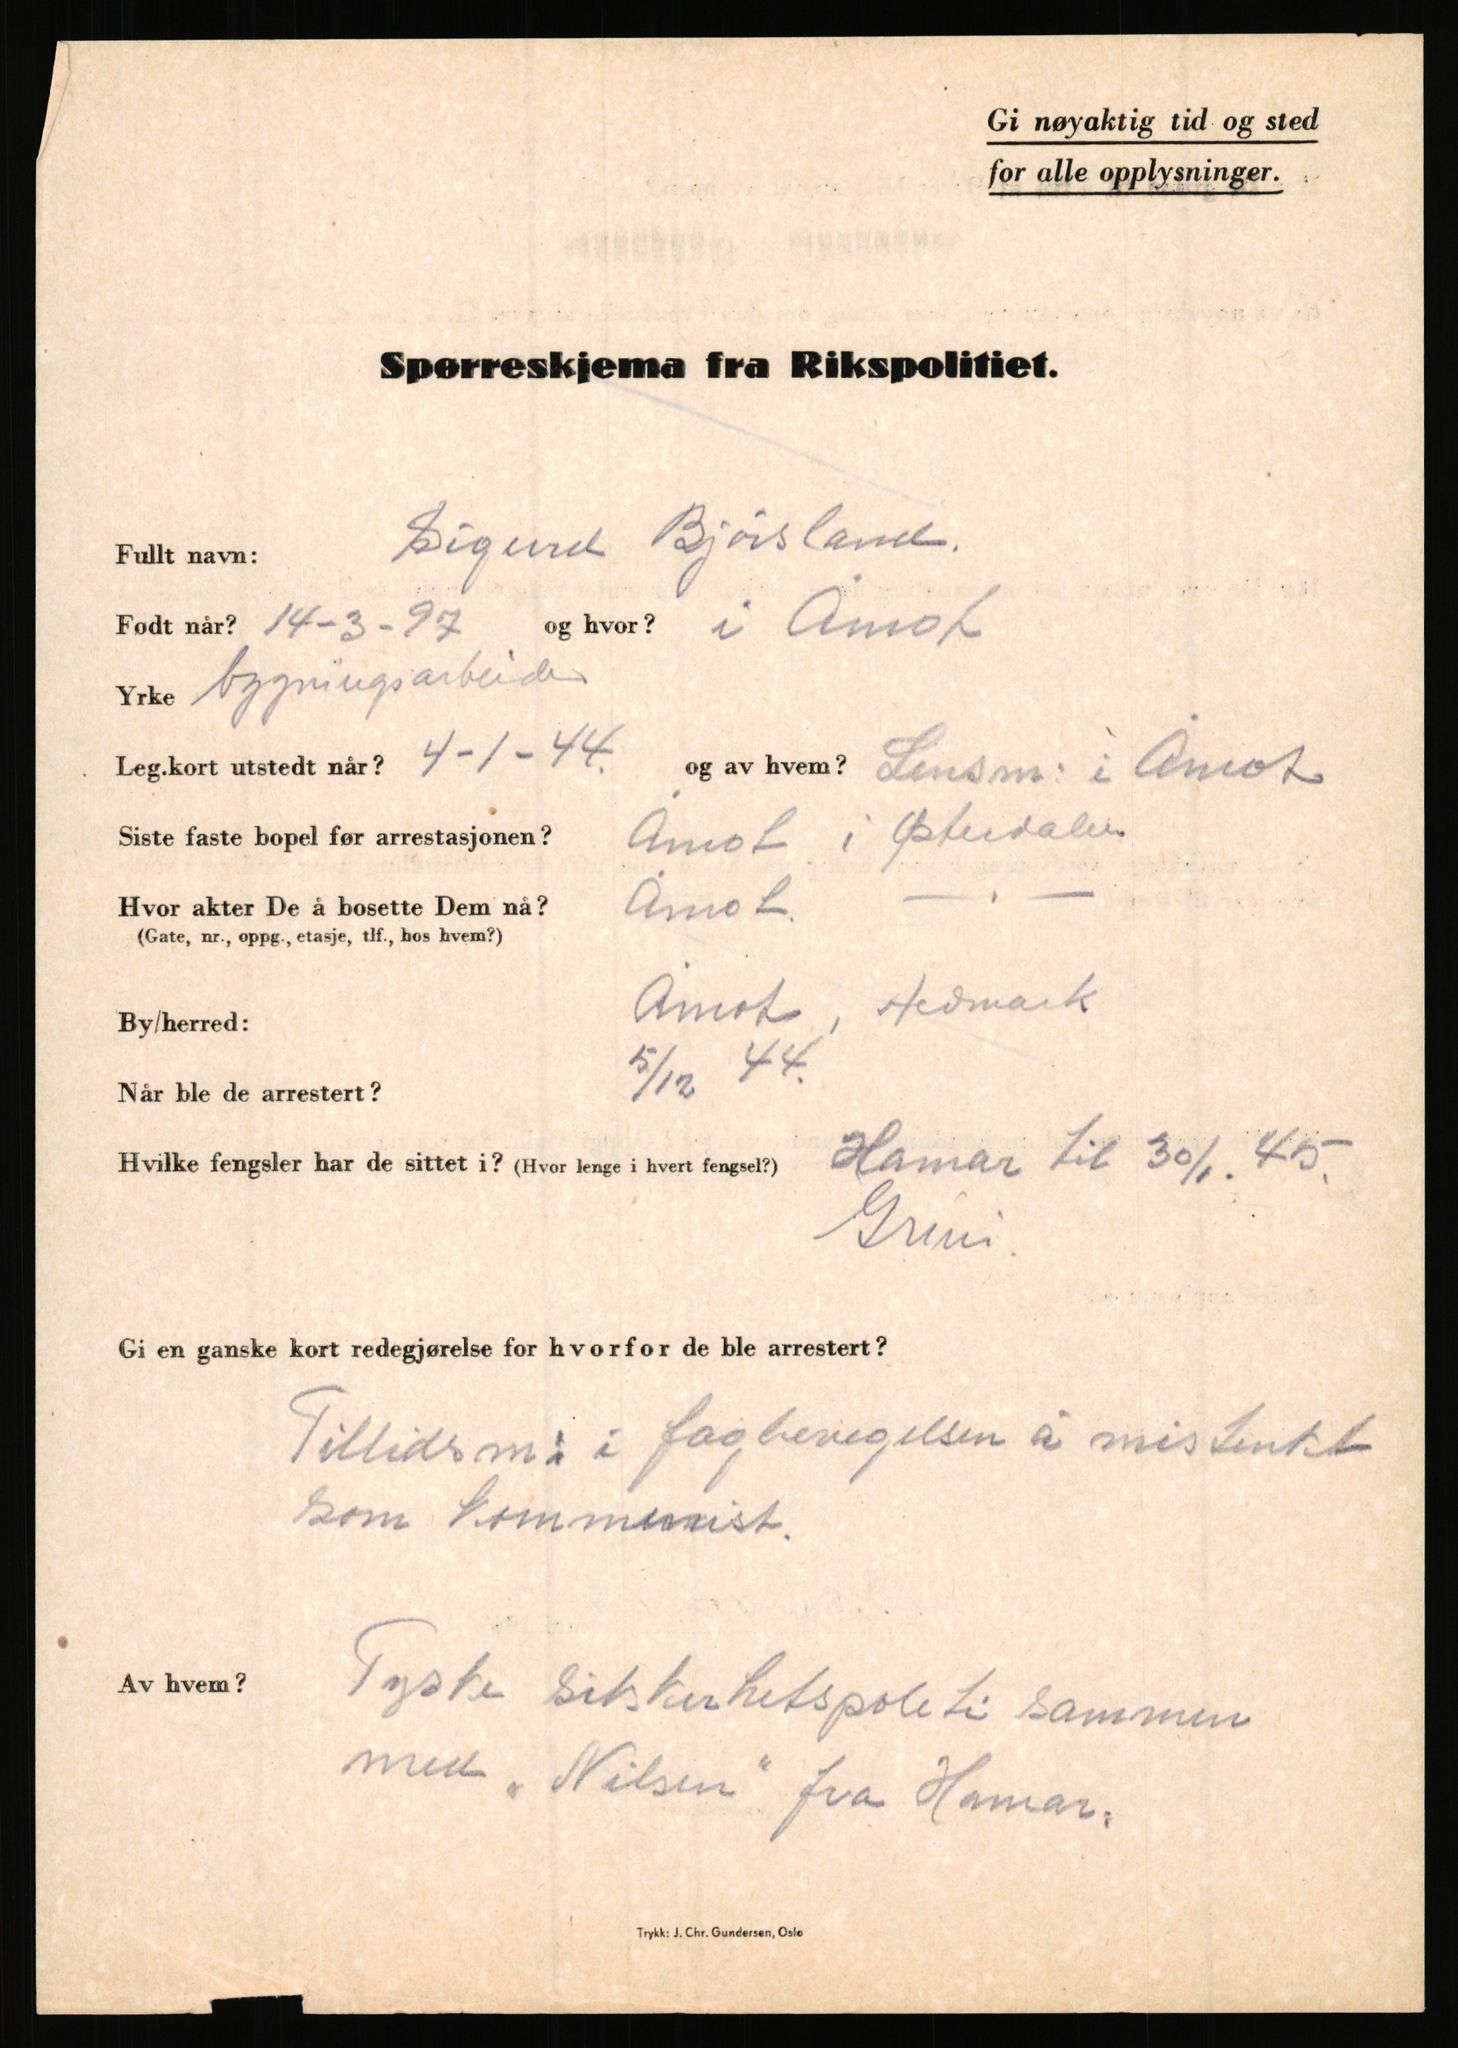 Gi nøyaktig tid og sted
for alle opplysninger.
Spørreskjema fra Rikspolitiet.
Fullt navn: Sigurd Bjørsland.
Født når? 14-3-97 og hvor? i Åmot
Yrke bygningsarbeider
Leg.kort utstedt når? 4-1-44. og av hvem? Lensm: i Åmot
Siste faste bopel før arrestasjonen? Åmot i Østerdalen
Hvor akter De å bosette Dem nå? Åmot. — . —
(Gate, nr., oppg., etasje, tlf., hos hvem?)
By/herred: Åmot, Hedmark
Når ble de arrestert? 5/12 44.
Hvilke fengsler har de sittet i? (Hvor lenge i hvert fengsel?) Hamar til 30/1. 45.
Grini.
Gi en ganske kort redegjørelse for hvorfor de ble arrestert?
Tillidsm: i fagbevegelsen å mistenkt
som kommunist.
Av hvem? Tyske sikkerhetspoleti sammen
med „Nilsen" fra Hamar.
Trykk: J. Chr. Gundersen, Oslo